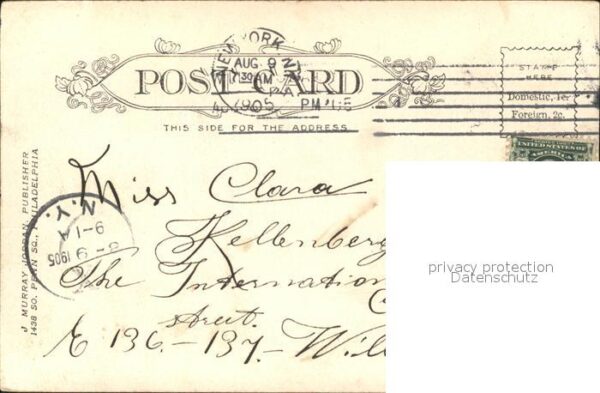 NEW YORK N.Y.
AUG 9
7 30 AM
1905
PA.
PM
POST CARD
THIS SIDE FOR THE ADDRESS
STAMP
HERE
Domestic, 1c.
Foreign, 2c.
UNITED STATES OF
AMERICA
J. MURRAY JORDAN, PUBLISHER
1438 SO. PENN SQ., PHILADELPHIA
N.Y.
9-1A
8-9
1905
Miss Clara
Kellenberg
The Internation
C
street.
E 136.-137.- Will
privacy protection
Datenschutz